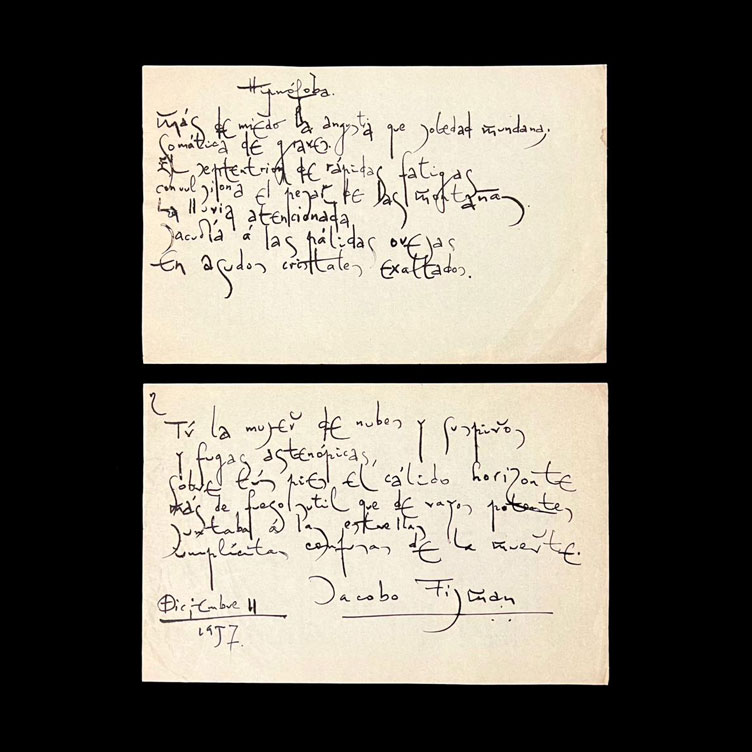 más de miedo la angustia que soledad mundana.
somática de graves.
El septentrión de rápidas fatigas
convulsiona el pesar de las montañas.
La lluvia atencionada
sacudía á las pálidas ovejas
En agudos cristales exaltados.
2
Tú la mujer de nubes y suspiros
y fugas astenópicas,
sobre tús pies el cálido horizonte
más de fuego sutil que de rayos potentes
juxtaba á las estrellas
cumplícitas confusas de la muerte.
Jacobo Fijman
Diciembre 11
1957.